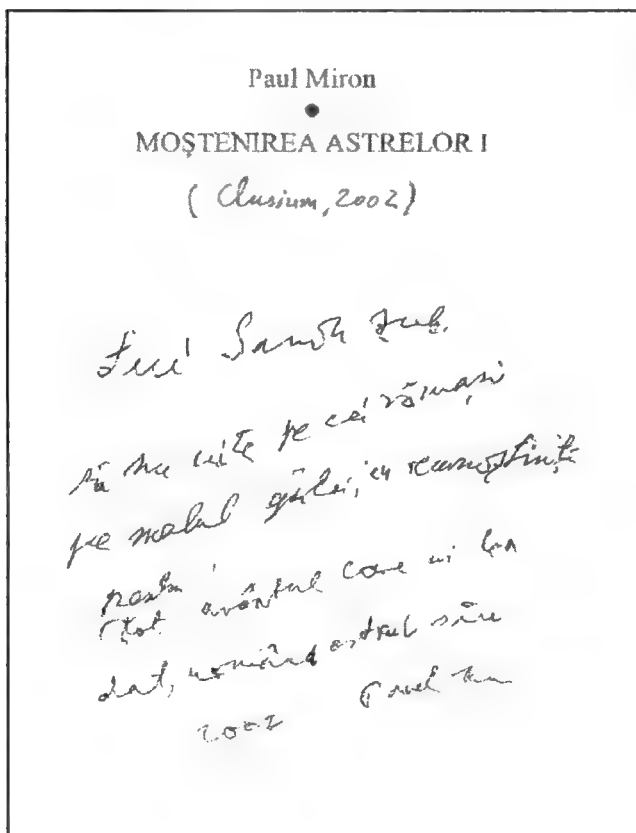 Paul Miron
MOŞTENIREA ASTRELOR I
(Clusium, 2002)
Lui Sandu
să nu uite pe cei rămaşi
pe malul gârlei, cu recunoştinţă
pentru
tot avântul care ni l-a
dat, urmând astrul său
2002 Pavel